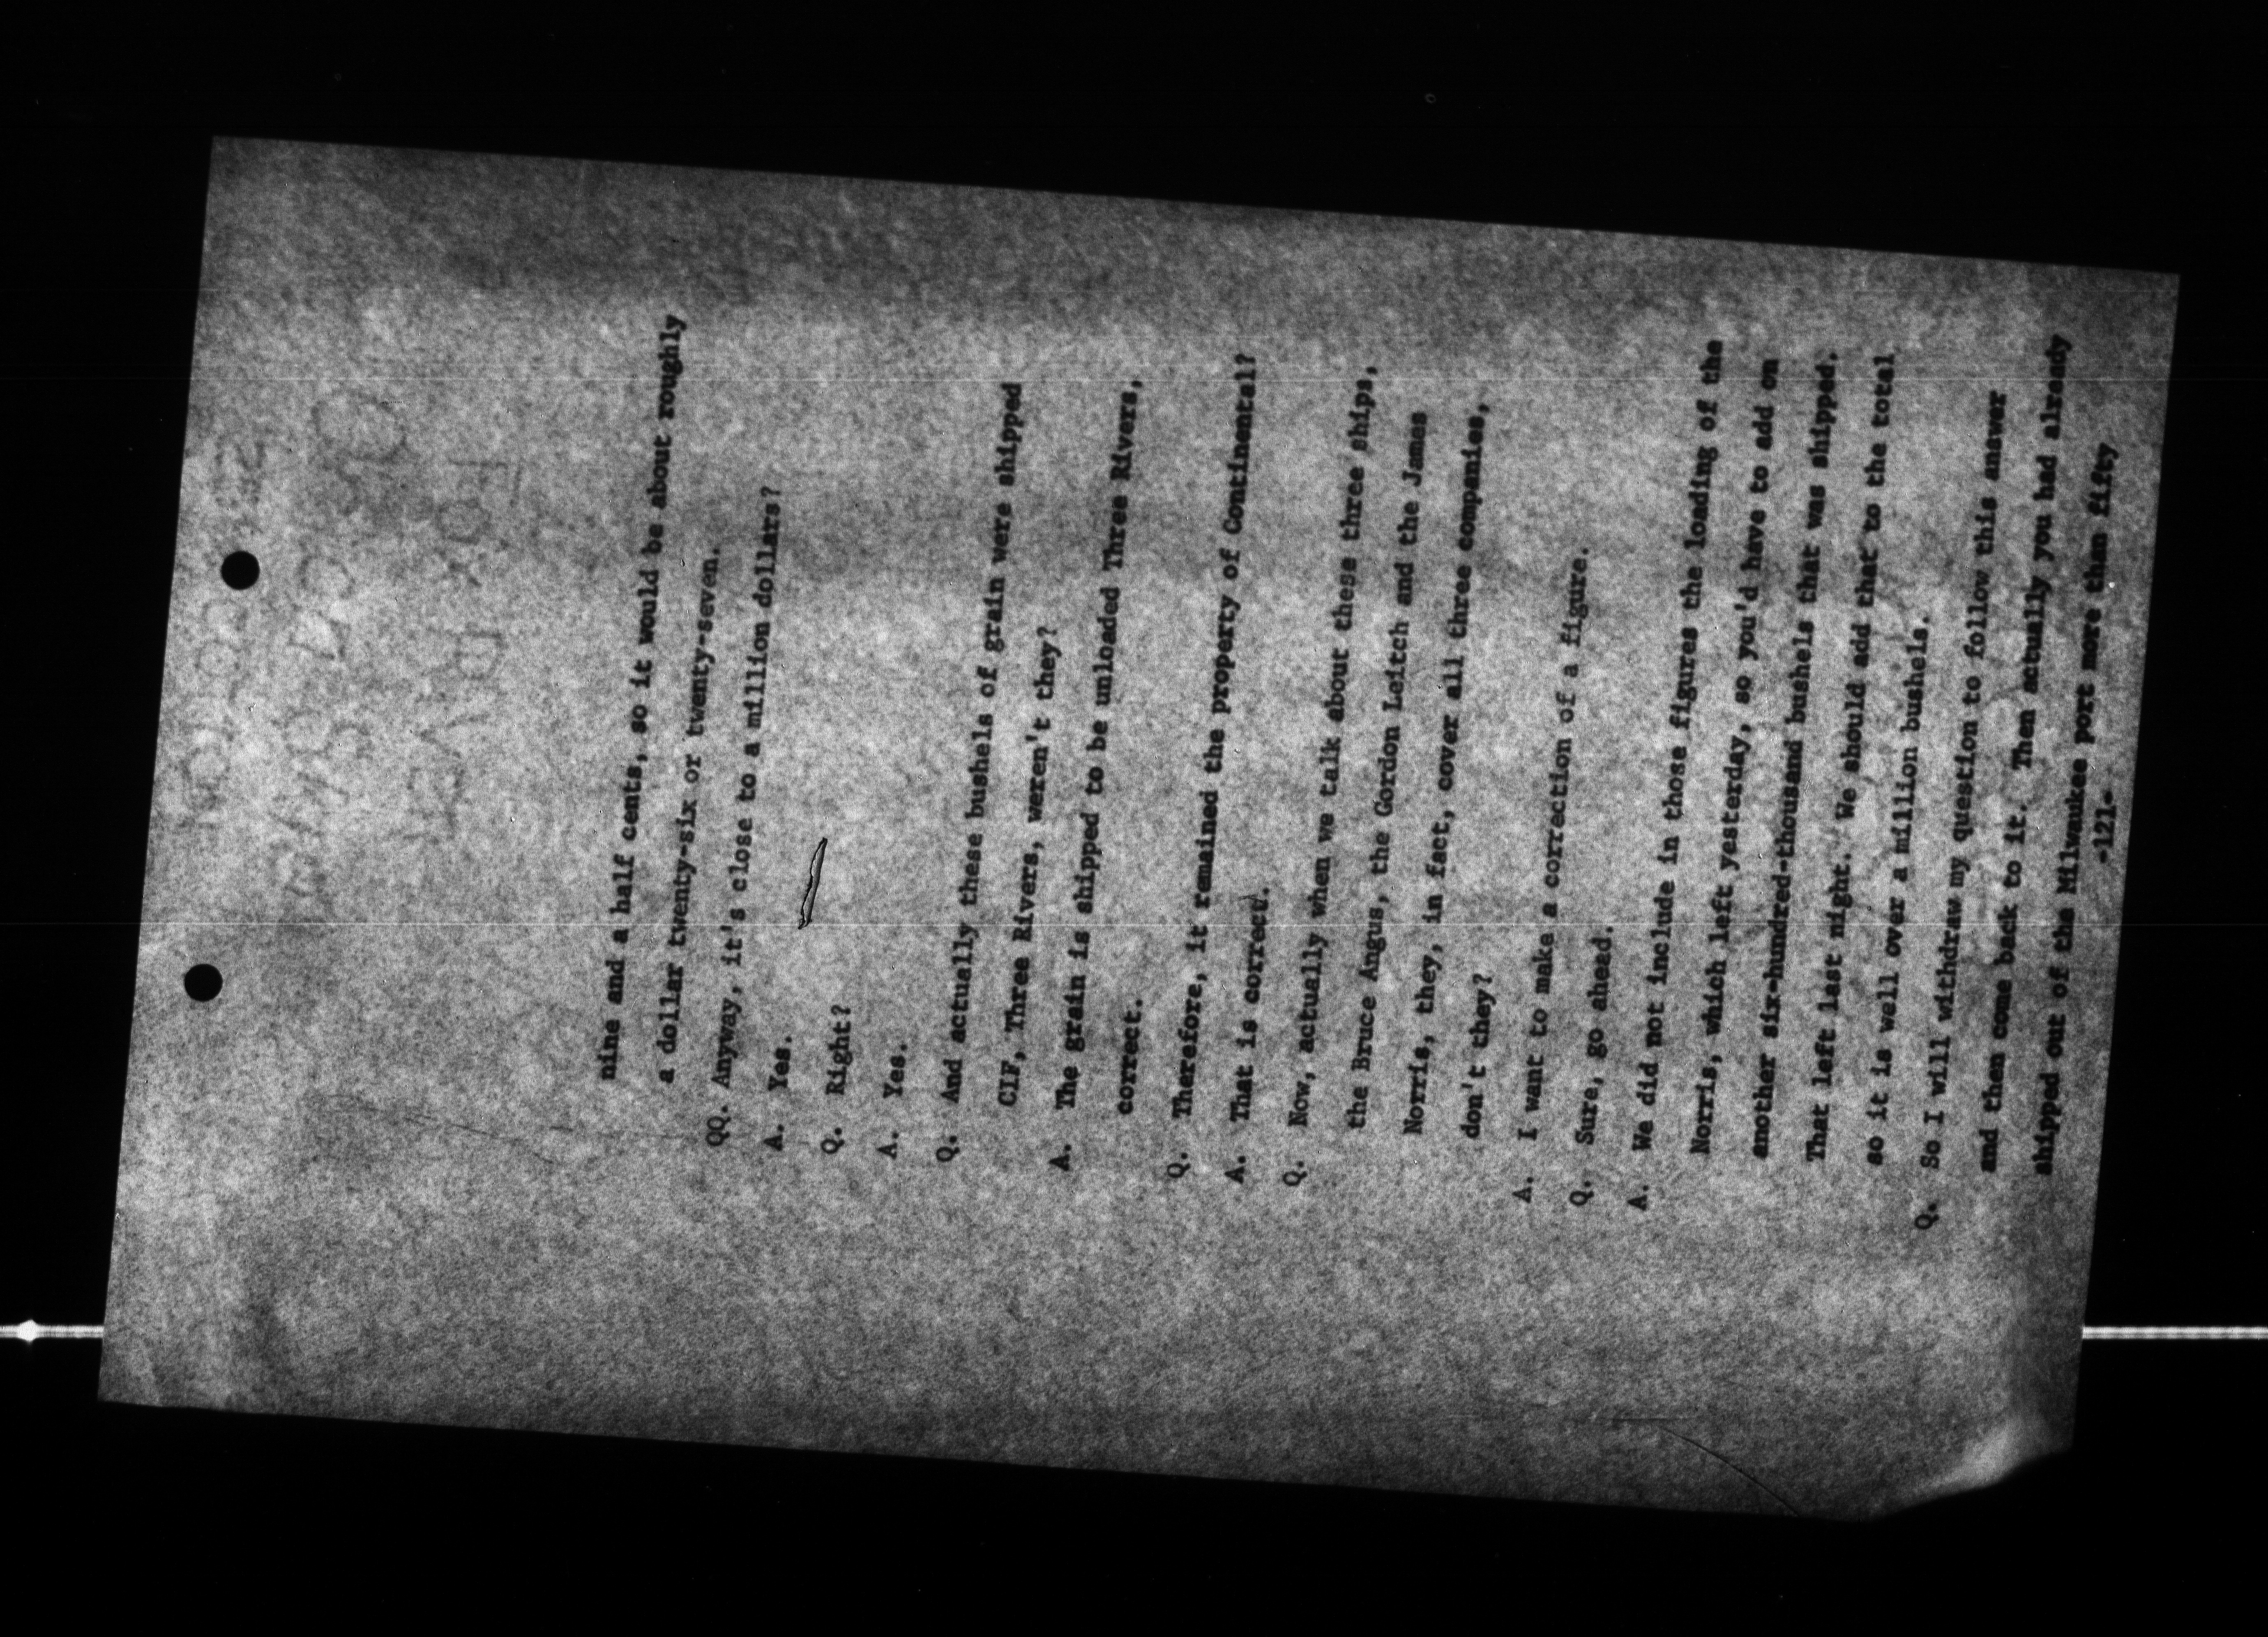 nine and a half cents, so it would be about roughly
a dollar twenty-six or twenty-seven.
QQ. Anyway, it's close to a million dollars?
A. Yes.
Q. Right?
A. Yes.
Q. And actually these bushels of grain were shipped
CIF, Three Rivers, weren't they?
A. The grain is shipped to be unloaded Three Rivers,
correct.
Q. Therefore, it remained the property of Continental?
A. That is correct.
Q. Now, actually when we talk about these three ships,
the Bruce Angus, the Gordon Leitch and the James
Norris, they, in fact, cover all three companies,
don't they?
A. I want to make a correction of a figure.
Q. Sure, go ahead.
A. We did not include in those figures the loading of the
Norris, which left yesterday, so you'd have to add on
another six-hundred-thousand bushels that was shipped.
That left last night. We should add that to the total
so it is well over a million bushels.
Q. So I will withdraw my question to follow this answer
and then come back to it. Then actually you had already
shipped out of the Milwaukee port more than fifty
-121-